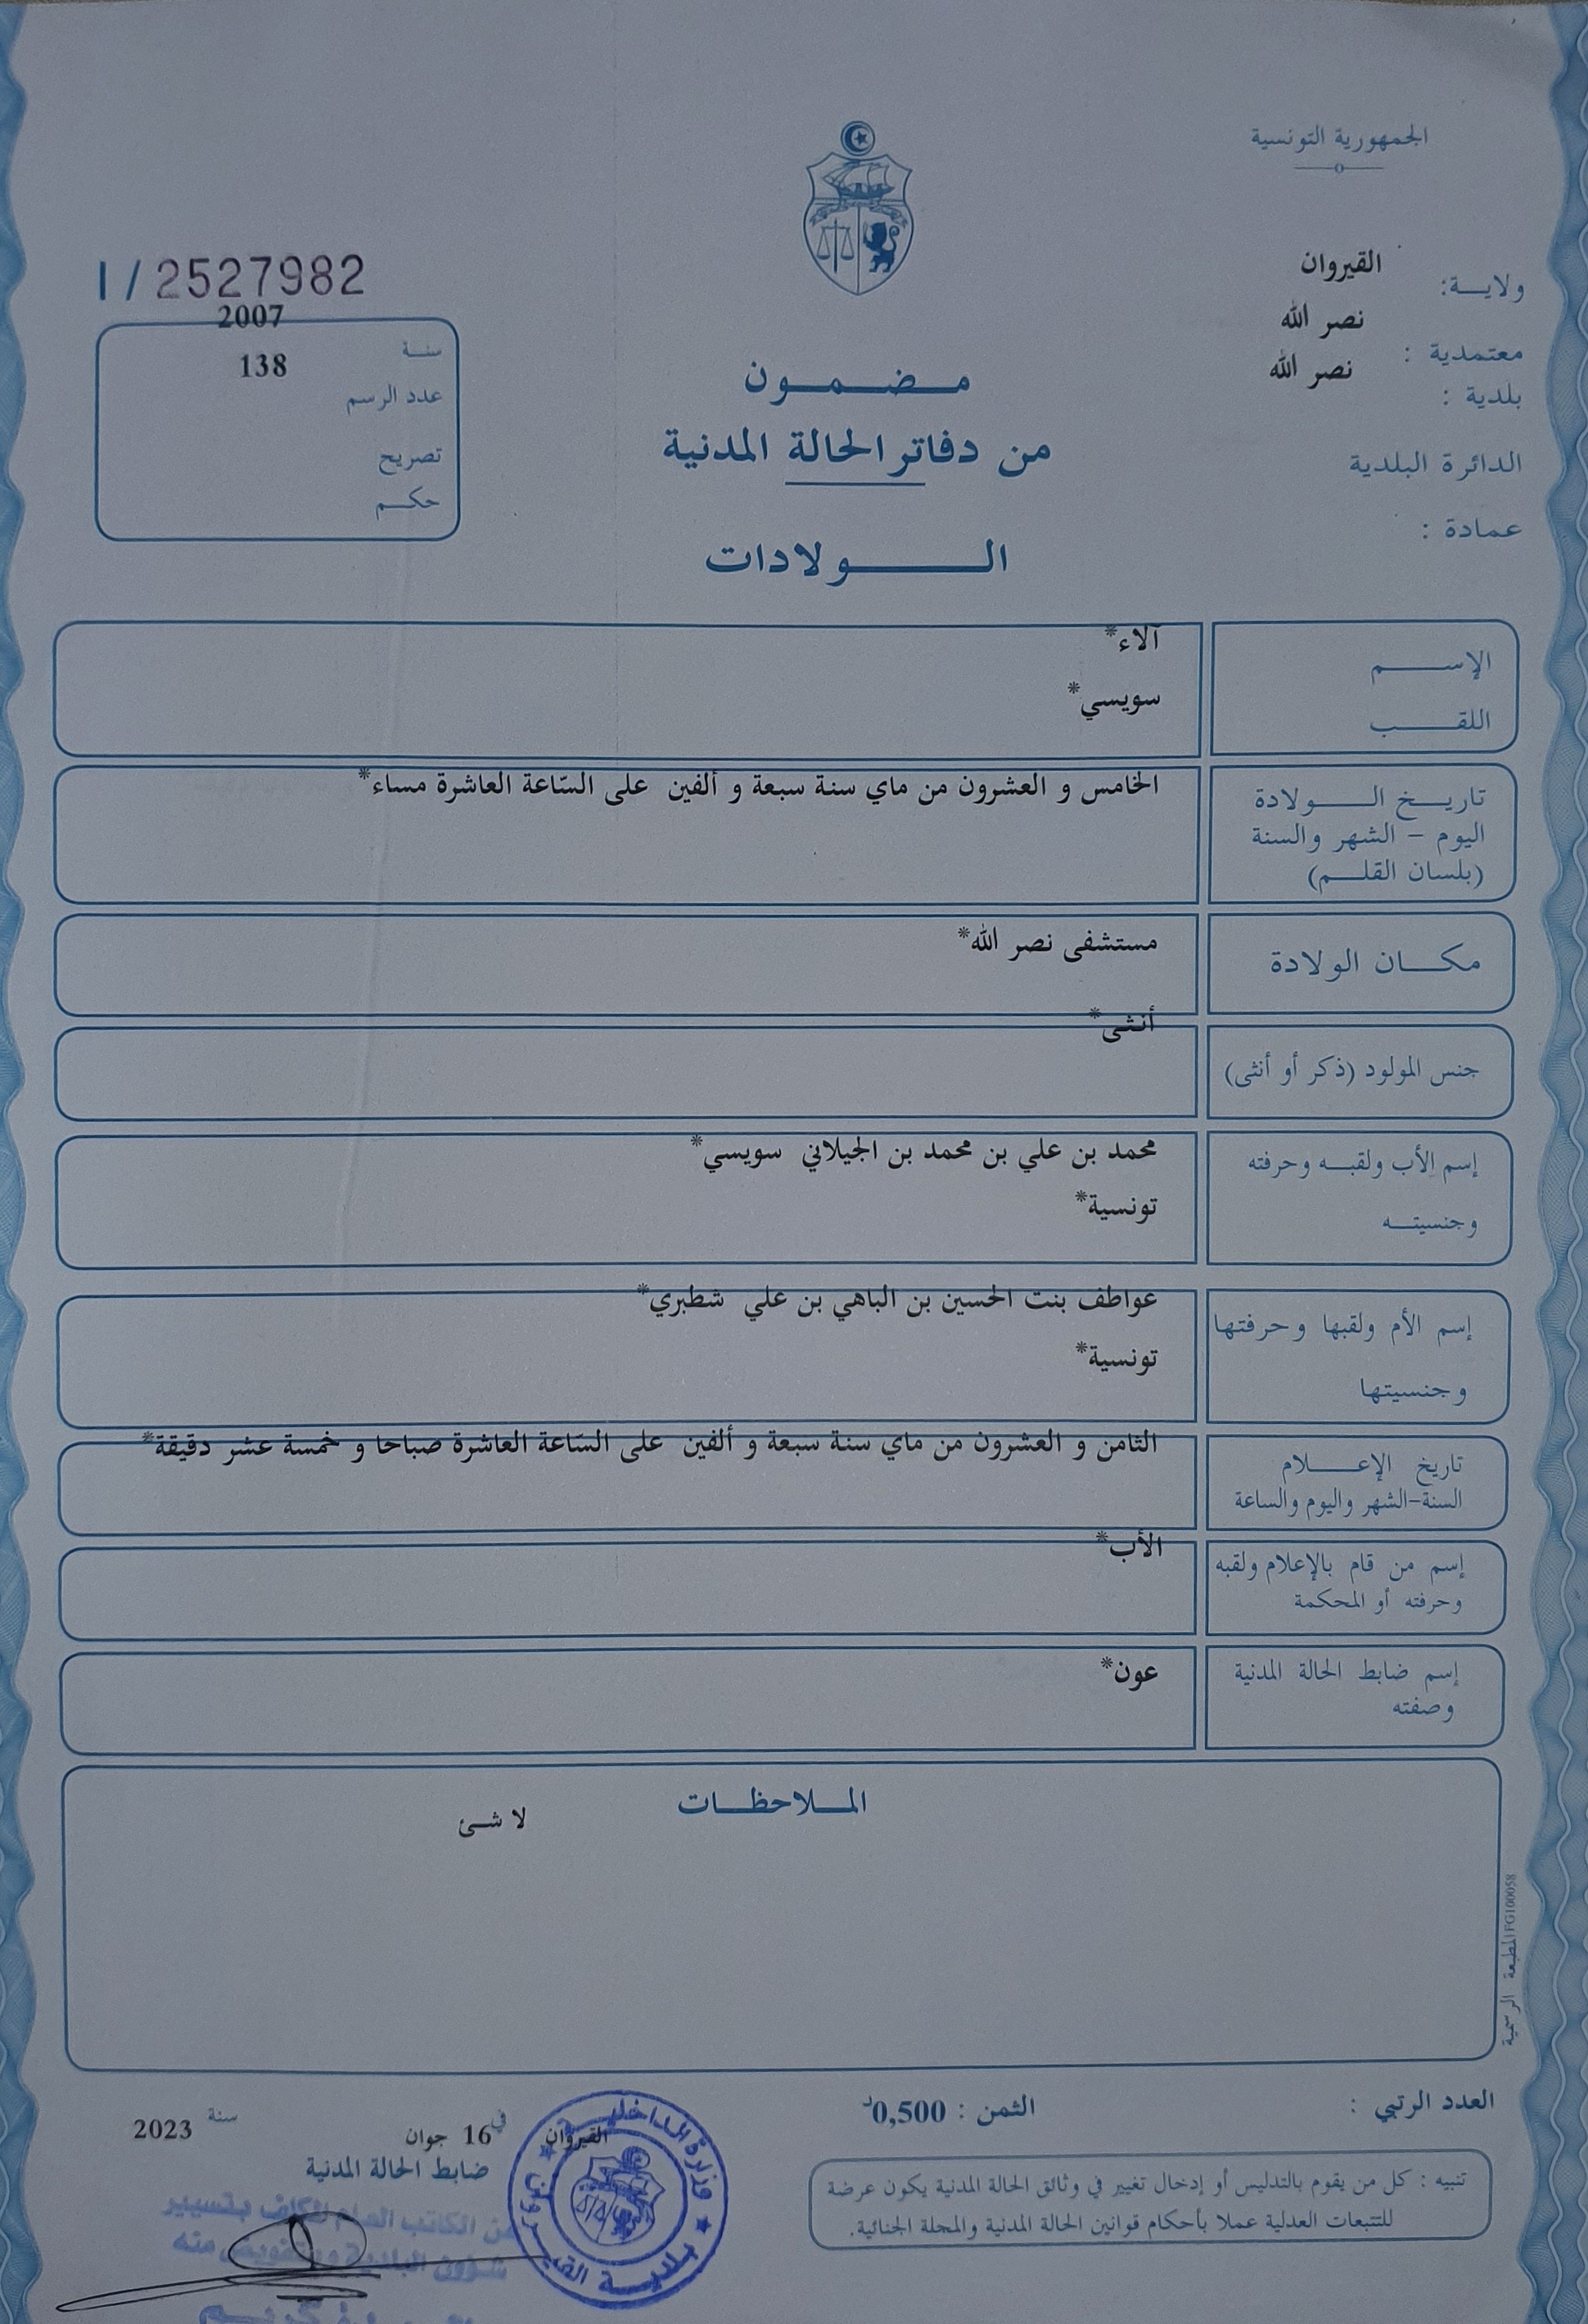 الجمهورية التونسية
ولايــة: القيروان
معتمدية : نصر الله
بلدية : نصر الله
الدائرة البلدية
عمادة :
I / 2527982
سنة 2007
عدد الرسم 138
تصريح
حكم
مضمون
من دفاتر الحالة المدنية
الولادات
الإسم آلاء*
اللقب سويسي*
تاريخ الولادة الخامس و العشرون من ماي سنة سبعة و ألفين على السّاعة العاشرة مساء*
اليوم - الشهر والسنة
(بلسان القلم)
مكان الولادة مستشفى نصر الله*
جنس المولود (ذكر أو أنثى) أنثى*
إسم الأب ولقبه وحرفته محمد بن علي بن محمد بن الجيلاني سويسي*
وجنسيته تونسية*
إسم الأم ولقبها وحرفتها عواطف بنت الحسين بن الباهي بن علي شطبري*
وجنسيتها تونسية*
تاريخ الإعلام الثامن و العشرون من ماي سنة سبعة و ألفين على السّاعة العاشرة صباحا و خمسة عشر دقيقة*
السنة-الشهر واليوم والساعة
إسم من قام بالإعلام ولقبه الأب*
وحرفته أو المحكمة
إسم ضابط الحالة المدنية عون*
وصفته
الملاحظات
لا شئ
المطبعة الرسمية FG100058
العدد الرتبي :
الثمن : 0,500د
القيروان في 16 جوان سنة 2023
ضابط الحالة المدنية
تنبيه : كل من يقوم بالتدليس أو إدخال تغيير في وثائق الحالة المدنية يكون عرضة
للتتبعات العدلية عملا بأحكام قوانين الحالة المدنية والمجلة الجنائية.
وزارة الداخلية
بلدية القيروان
عن الكاتب العام المكلف بتسيير
شؤون البلدية وبتفويض منه